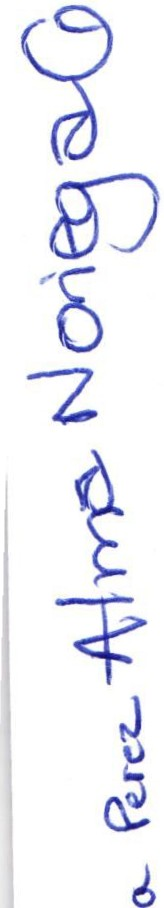 a Perez Alma NoriegaO